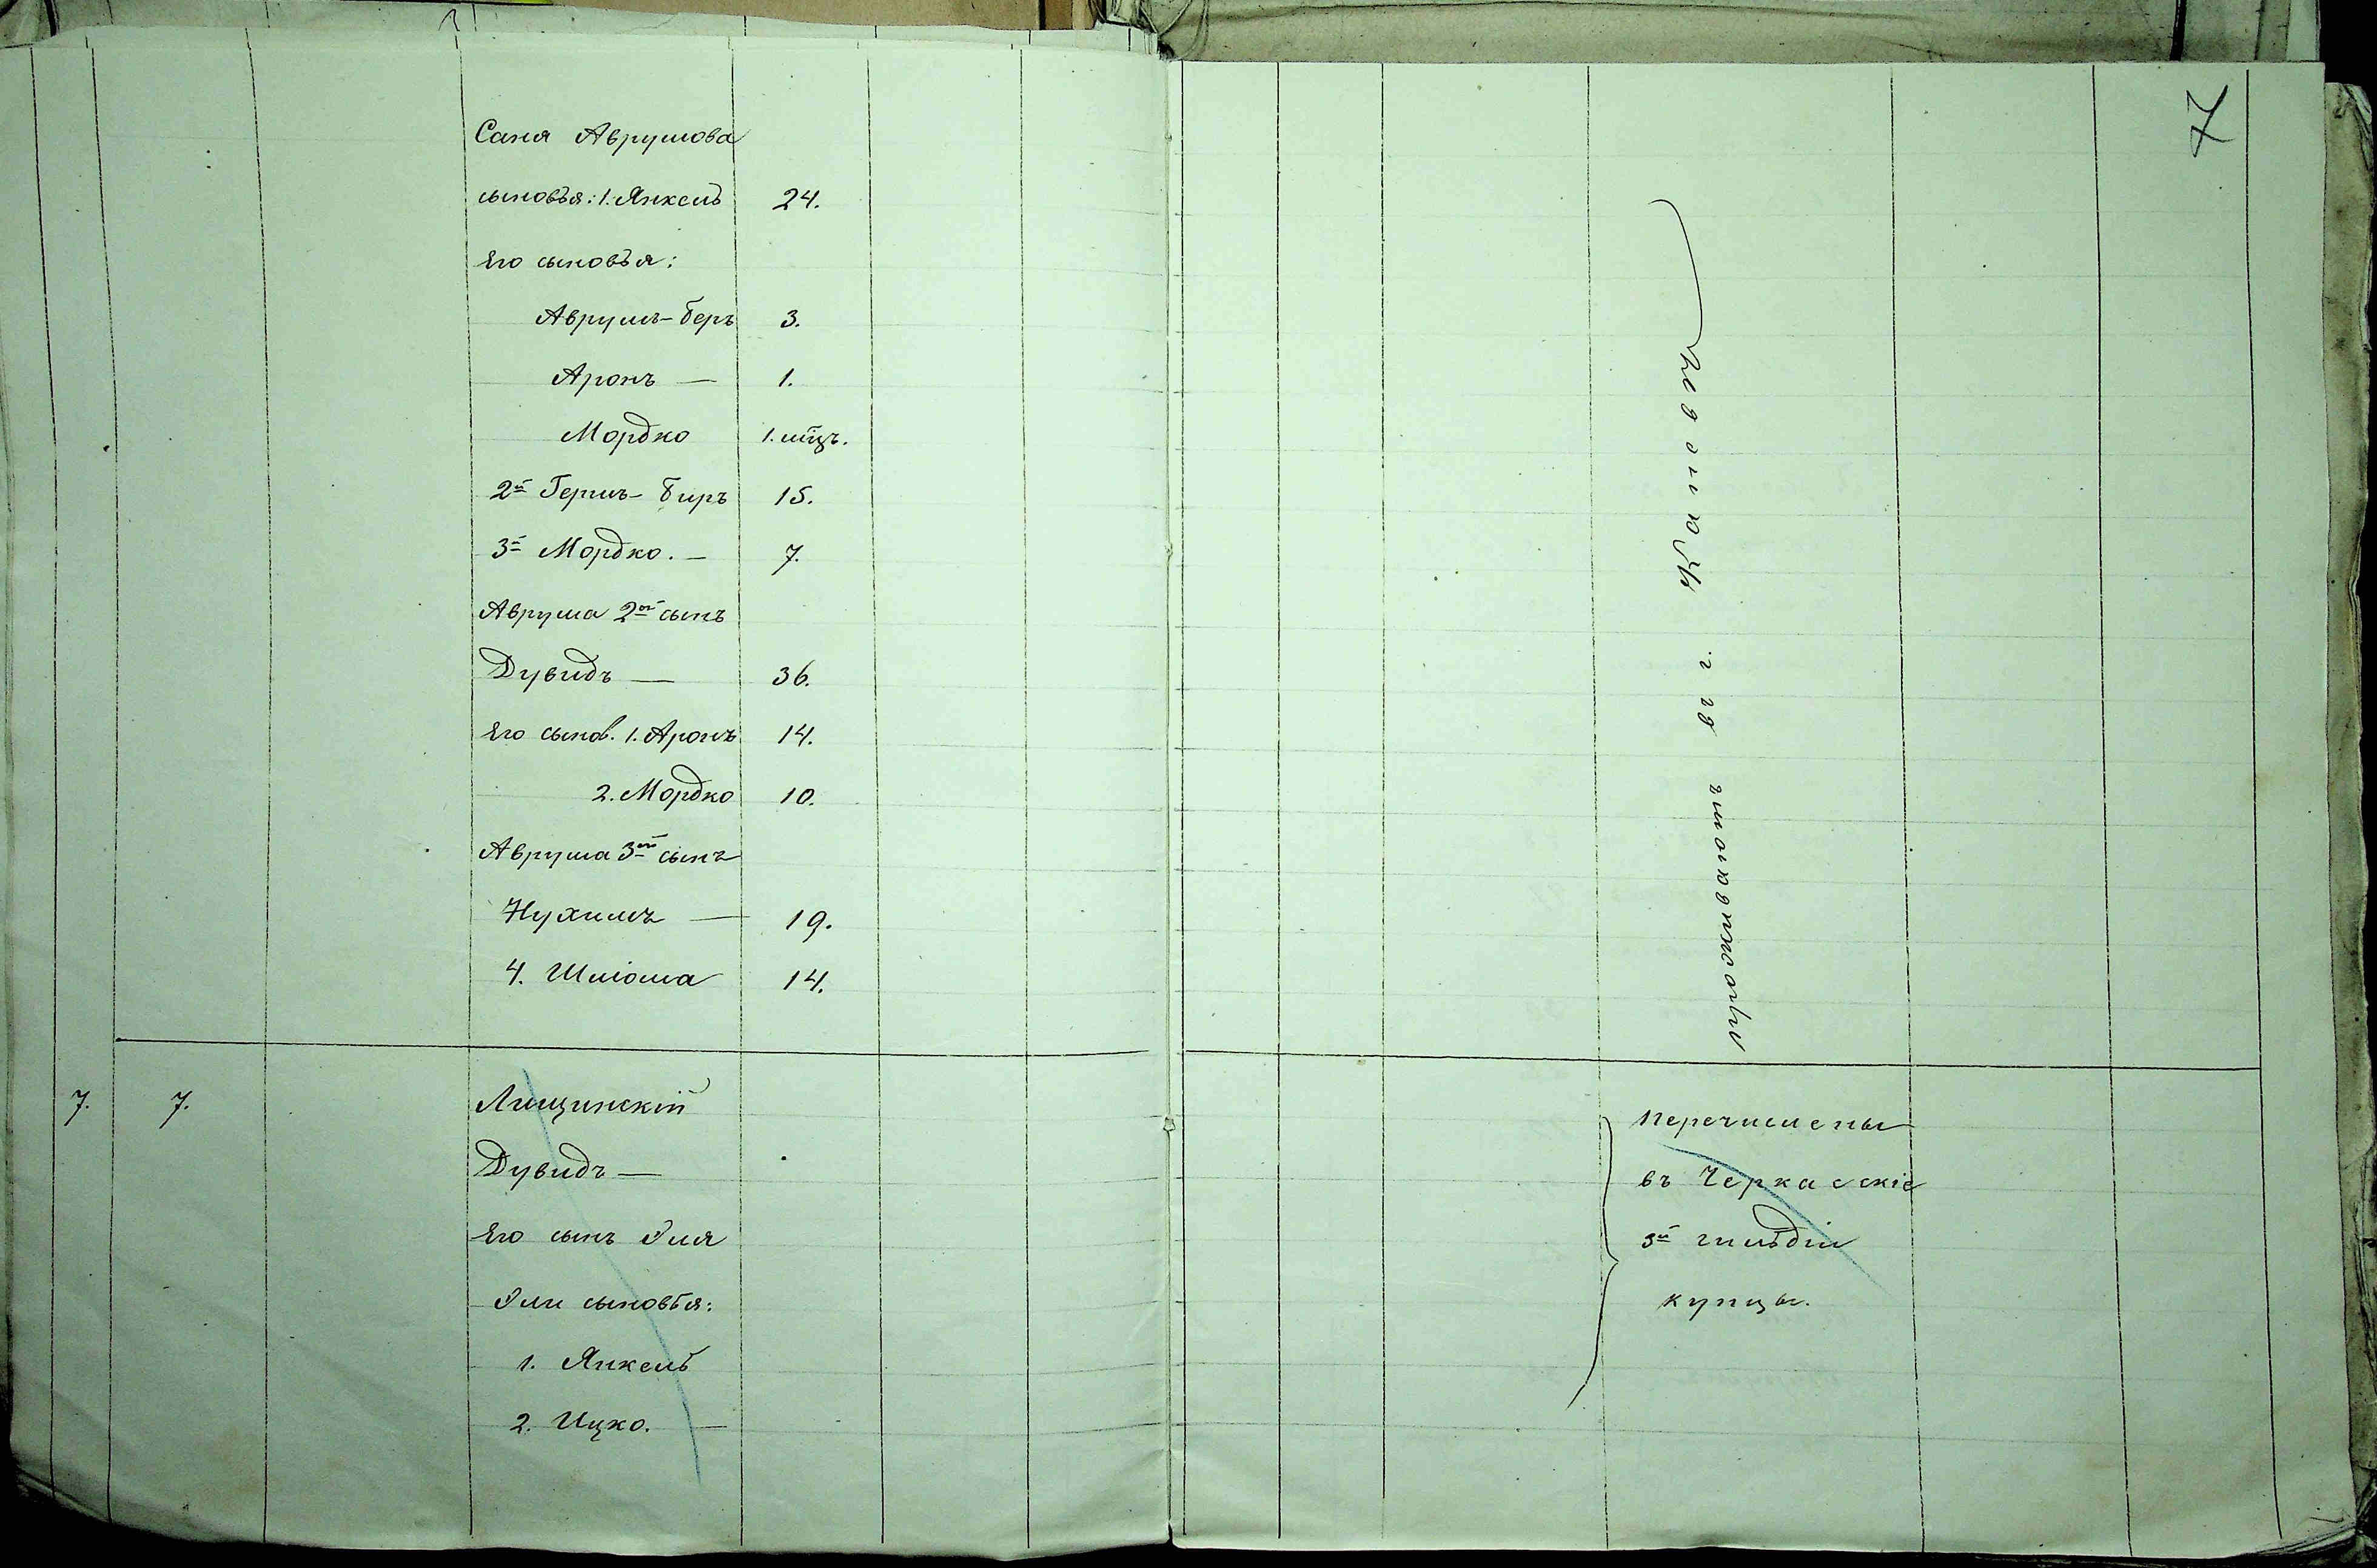 7
Саня Аврумова
сыновья: 1. Янкель 24.
Его сыновья:
Аврумъ-Беръ 3.
Аронъ — 1.
Мордко 1. мѣц.
2й Гершъ-Биръ 15.
3й Мордко. — 7.
Аврума 2ой сынъ
Дувидъ — 36.
Его сынов. 1. Аронъ 14.
2. Мордко 10.
Аврума 3ій сынъ
Нухимъ — 19.
4. Шліома 14.
проживаютъ въ г.
7. 7. Лищинскій
Дувидъ —
Его сынъ Эля
Эли сыновья:
1. Янкель
2. Ицко. —
перечислены
въ Черкасскіе
3й гильдіи
купцы.